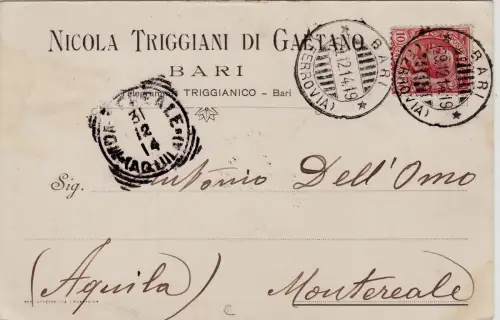 NICOLA TRIGGIANI DI GAETANO
BARI
TRIGGIANICO - Bari
BARI
12.14.19
(FERROVIA)
BARI
14.19
(FERROVIA)
10
31
12
14
(AQUILA)
Sig. Antonio Dell'Omo
(Aquila) Montereale
C